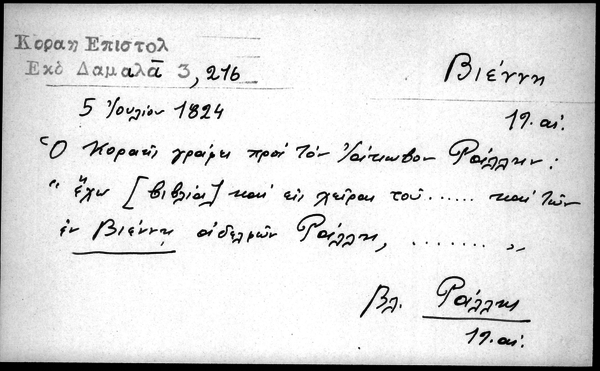 Κοραη Επιστολ
Εκδ Δαμαλᾶ 3, 216
Βιέννη
5 Ἰουλίου 1824
19. αἰ.
Ὁ Κοραῆς γράφει πρὸς τὸν Ἰάκωβον Ράλλην :
" ἔχω [βιβλία] καὶ εἰς χεῖρας τοῦ ...... καὶ τῶν
ἐν Βιέννῃ ἀδελφῶν Ράλλη, ....... "
βλ. Ράλλης
19. αἰ.